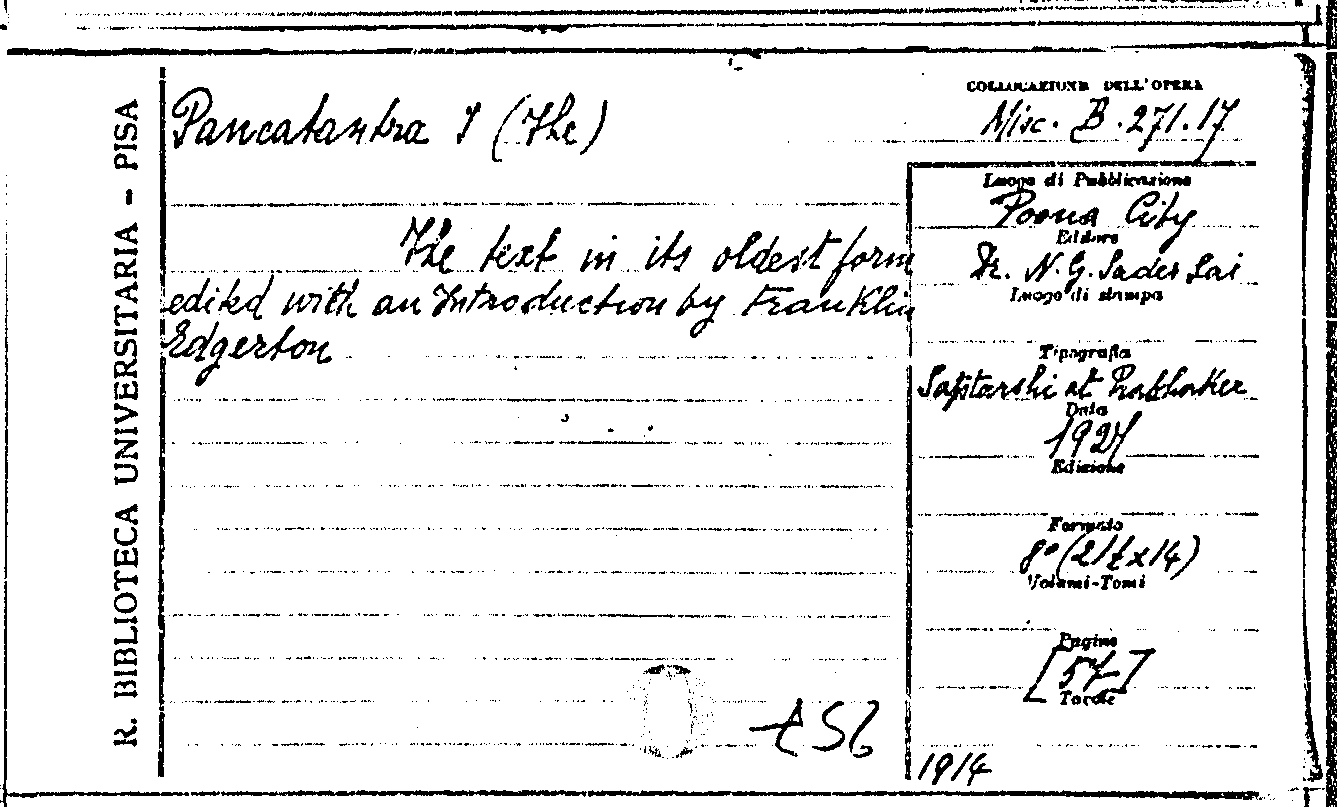 R. BIBLIOTECA UNIVERSITARIA - PISA
Pancatantra I (The)
The text in its oldest form
edited with an Introduction by Franklin
Edgerton
COLLOCAZIONE DELL'OPERA
Misc. B.271.17
Luogo di Pubblicazione
Poona City
Editore
Dr. N.G. Sades Sai
Luogo di stampa
Tipografia
Saptarshi at Prabhaker
Data
Edizione
Formato
Volumi-Tomi
Pagine
Tavole
1914